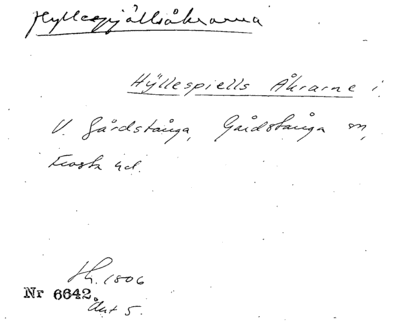 Hyllespjällsåkrarna
Hÿllespiells Åkrarne i
V. Gårdstånga, Gårdstånga sn,
Frosta hd.
Sk. 1806
Nr 6642.
Akt 5.